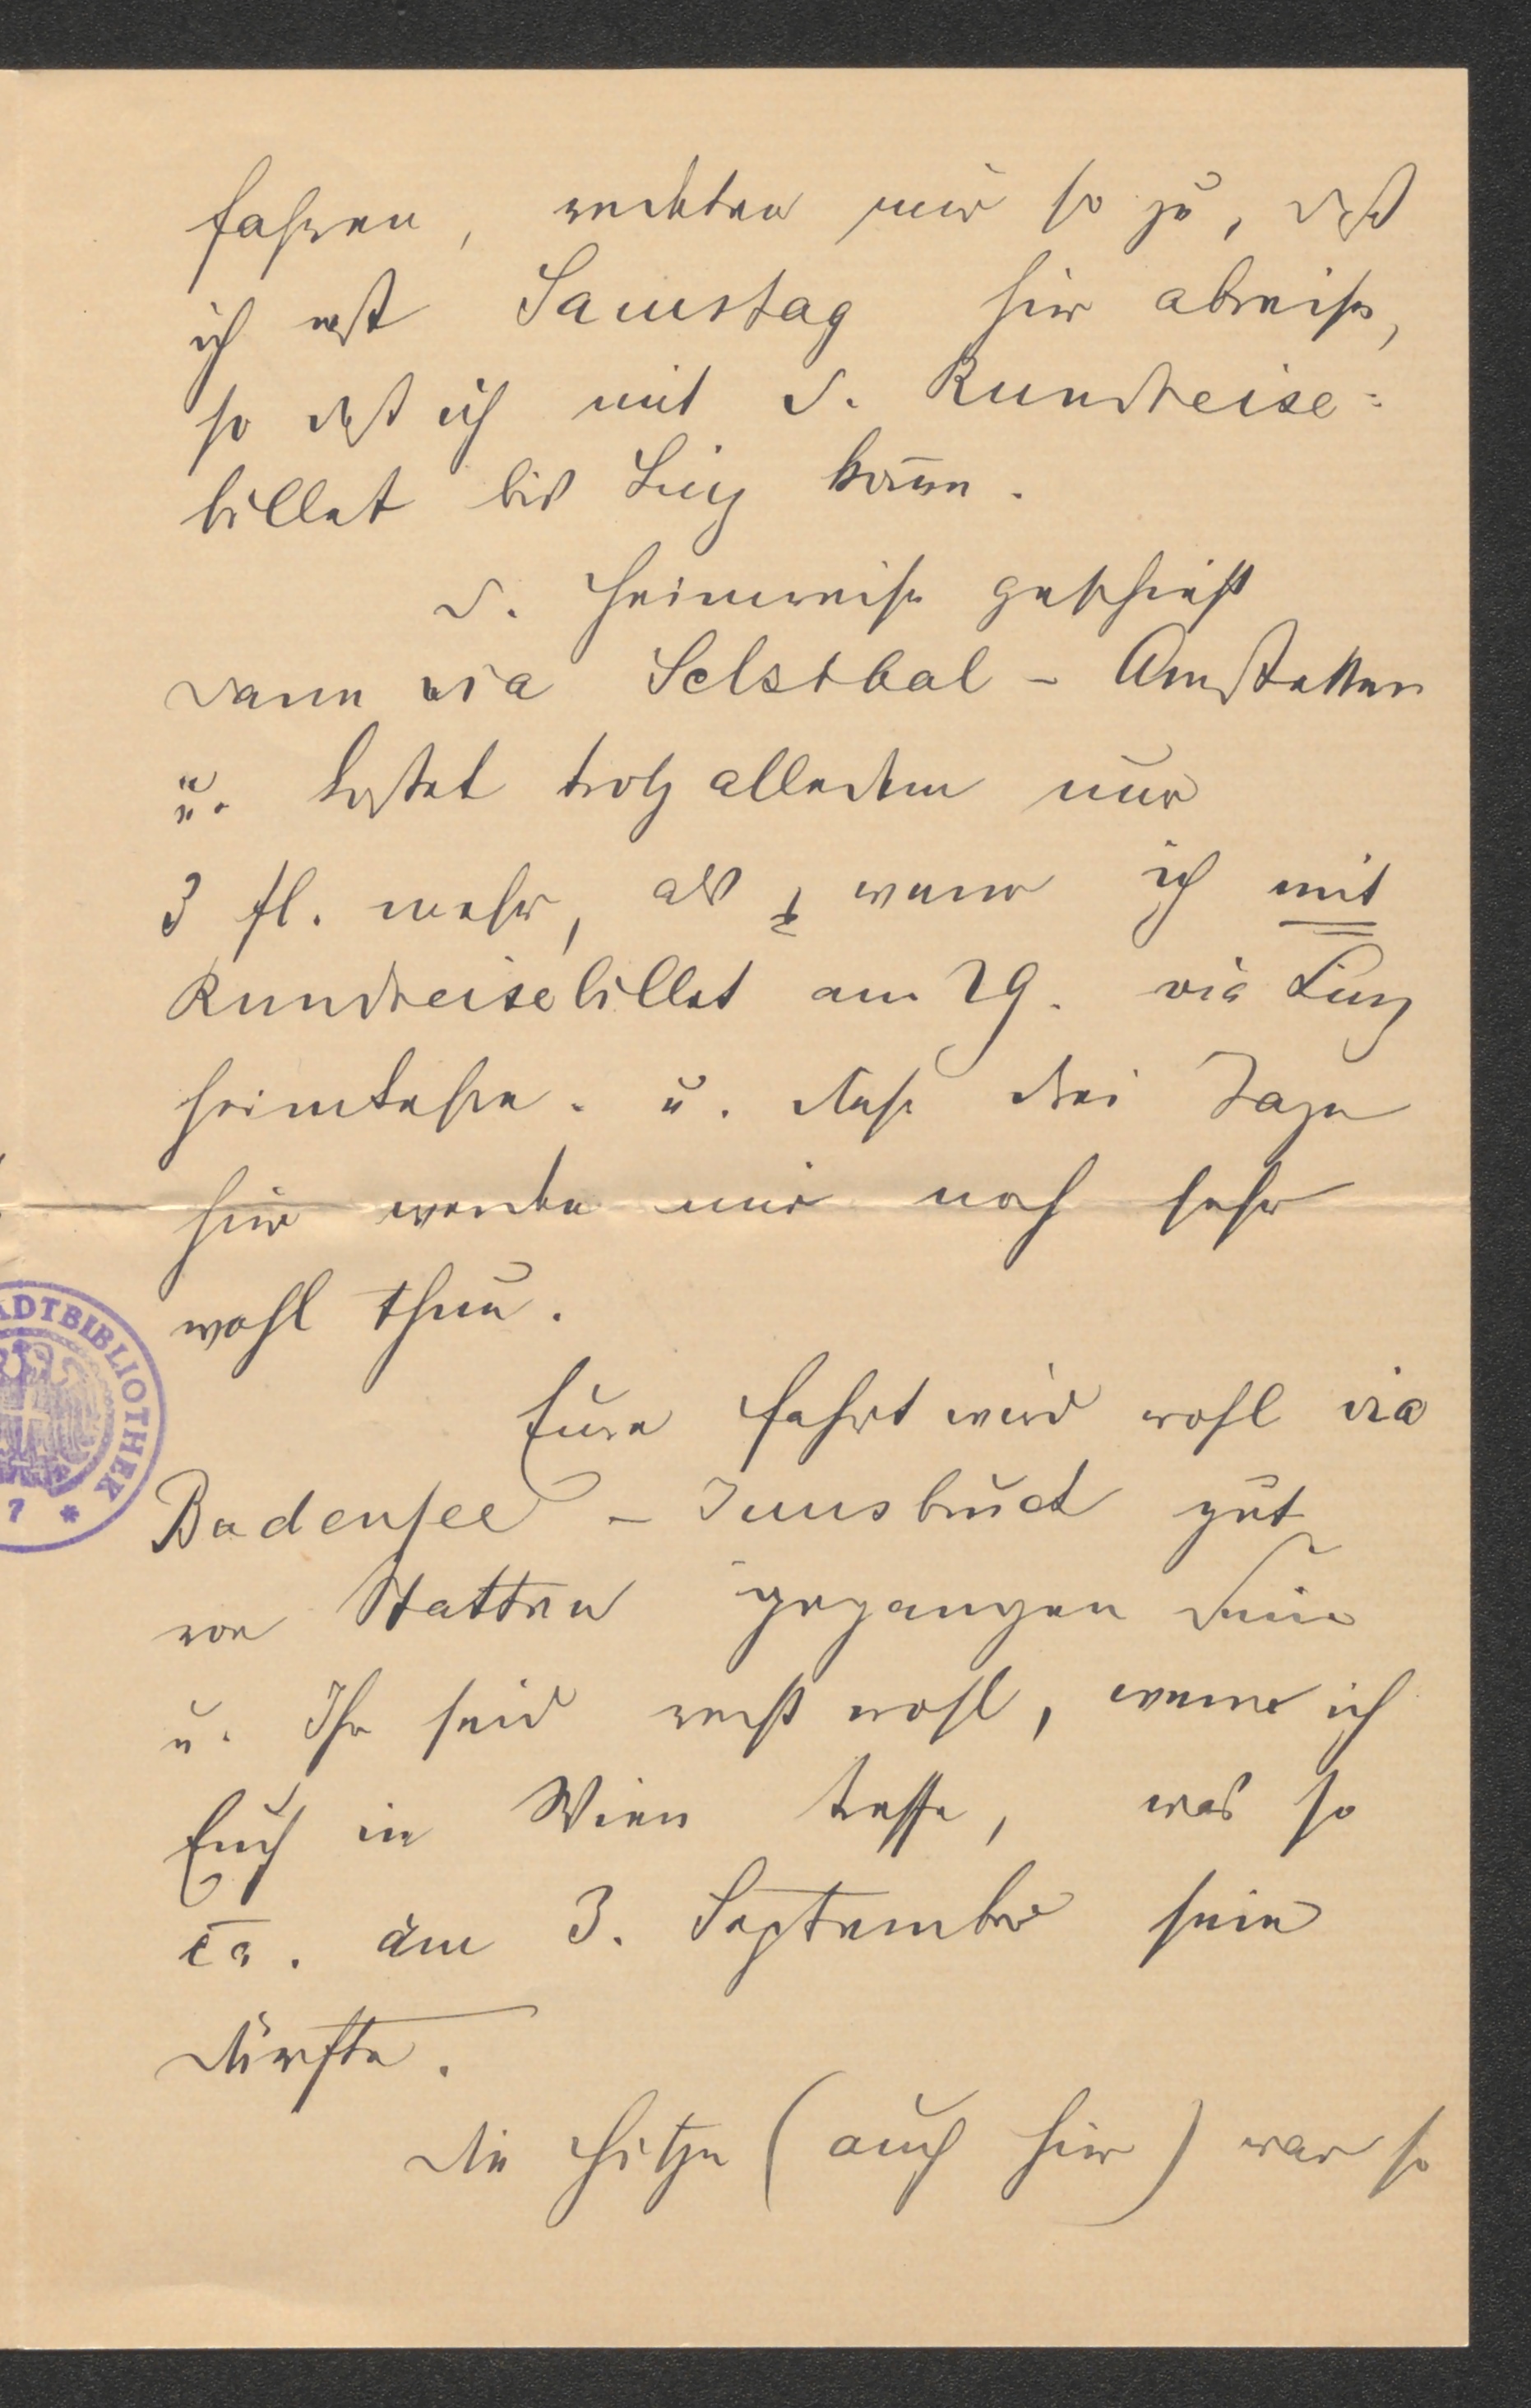 fahren, redeten mir so zu, daß
ich erst Samstag hier abreise,
so daß ich mit d. Rundreise=
billet bis Linz kom̄e.
D. Heimreise geschieht
dann via Selzthal - Amstetten
u. kostet trotz alledem nur
3 fl. mehr, als wenn ich mit
Rundreisebillet am 29. via Linz
heimkehre. u. diese drei Tage
hier werden mir noch sehr
wohl thun.
Eure Fahrt wird wohl via
Bodensee - Innsbruck gut
von Statten gegangen sein
u. Ihr seid recht wohl, wenn ich
Euch in Wien treffe, was so
ca. am 3. September sein
dürfte.
Die Hitze (auch hier) war so
ADTBIBLIOTHEK
7 *